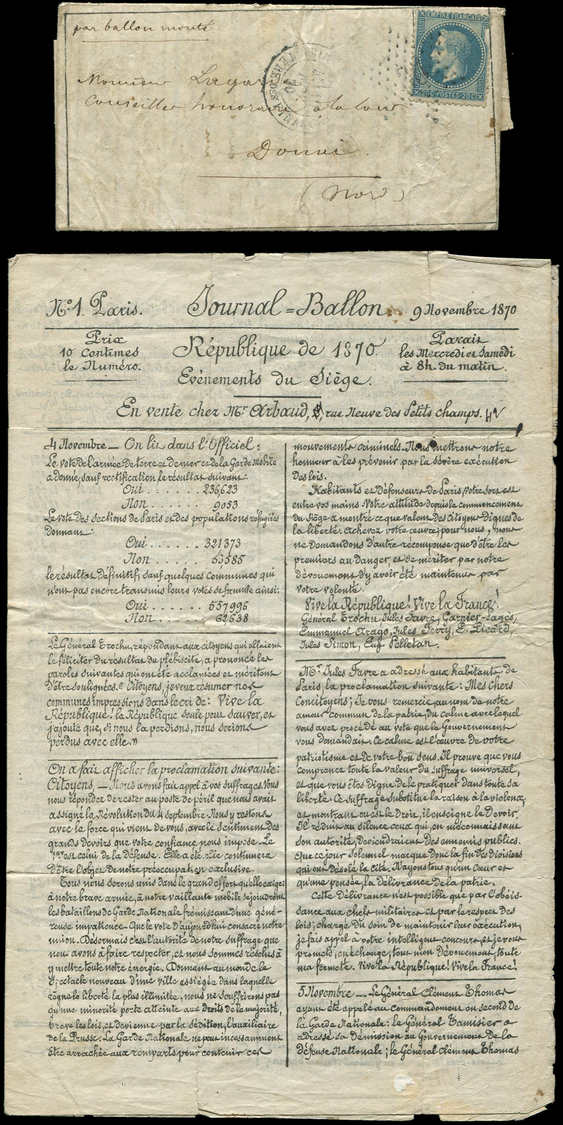 par ballon monté
EMPIRE FRANÇAIS
Monsieur
Conseiller honoraire à la cour
Douai
(Nord)
N° 1. Paris. Journal=Ballon 9 Novembre 1870
Prix
10 Centimes
le Numéro.
République de 1870.
Evénements du Siège.
Parait
les Mercredi et Samedi
à 8h. du matin.
En vente chez Mr. Arbaud, rue Neuve des Petits champs.
4 Novembre – On lit dans l'Officiel:
Le vote de l'armée de terre et de mer et de la Garde mobile
a donné, sauf rectification le résultat suivant
Oui . . . . . . . 236,623
Non . . . . . . . 9053
Le vote des sections de Paris et des populations réfugiées
donnait:
Oui . . . . . . . 321373
Non . . . . . . . 53585
le résultat définitif, sauf quelques communes qui
n'ont pas encore transmis leurs votes se formule ainsi:
Oui . . . . . . . 557996
Non . . . . . . . 62638
Le Général Trochu, répondant aux citoyens qui allaient
le féliciter du résultat du plébiscite, a prononcé les
paroles suivantes qui ont été acclamées et méritent
d'être soulignées: "Citoyens, je veux résumer nos
communes impressions dans le cri de: Vive la
République! la République seule peut sauver, et
j'ajoute que si nous la perdions, nous serions
perdus avec elle."
On a fait afficher la proclamation suivante:
Citoyens, – Nous avons fait appel à vos suffrages. Vous
nous répondez de rester au poste de péril que nous avait
assigné la Révolution du 4 septembre. Nous y restons
avec la force qui vient de vous, avec le sentiment des
grands devoirs que votre confiance nous impose. Le
1er est celui de la défense. Elle a été, elle continuera
d'être l'objet de notre préoccupation exclusive.
Tous nous serons unis dans le grand effort qu'elle exige:
à notre brave armée, à notre vaillante mobile se joindront
les bataillons de Garde Nationale frémissant d'une géné-
reuse impatience. Que le vote d'aujourd'hui consacre notre
union. Désormais c'est l'autorité de notre suffrage que
nous avons à faire respecter, et nous sommes résolus à
y mettre toute notre énergie. Donnant au monde le
spectacle nouveau d'une ville assiégée dans laquelle
règne la liberté la plus illimitée, nous ne souffrirons pas
qu'une minorité porte atteinte aux droits de la majorité,
brave les lois, et devienne par la sédition, l'auxiliaire
de la Prusse. La Garde Nationale ne peut incessamment
être arrachée aux remparts pour contenir ces
mouvements criminels. Nous mettrons notre
honneur à les prévenir par la sévère exécution
des lois.
Habitants et Défenseurs de Paris, votre sort est
entre vos mains. Votre attitude depuis le commencement
du Siège a montré ce que valent des citoyens dignes de
la liberté. Achevez votre œuvre; pour nous, nous
ne demandons d'autre récompense que d'être les
premiers au danger, et de mériter par notre
dévouement d'y avoir été maintenus par
votre volonté.
Vive la République! Vive la France!
Général Trochu, Jules Favre, Garnier-Pagès,
Emmanuel Arago, Jules Ferry, E. Picard,
Jules Simon, Eug. Pelletan.
Mr. Jules Favre a adressé aux habitants de
Paris, la proclamation suivante: Mes Chers
Concitoyens: Je vous remercie au nom de notre
amour commun de la patrie, du calme avec lequel
vous avez procédé au vote que le Gouvernement
vous demandait. Ce calme est l'œuvre de votre
patriotisme et de votre bon sens. Il prouve que vous
comprenez toute la valeur du suffrage universel,
et que vous êtes digne de le pratiquer dans toute sa
liberté. Ce suffrage substitue la raison à la violence,
et montrant où est le Droit, il enseigne le Devoir.
Il réduit au silence ceux qui, en méconnaissant
son autorité, deviendraient des ennemis publics.
Que ce jour solennel marque donc la fin des divisions
qui ont désolé la cité. N'ayons tous qu'un cœur et
qu'une pensée, la délivrance de la patrie.
Cette délivrance n'est possible que par l'obéis-
sance aux chefs militaires et par le respect des
lois; chargé du soin de maintenir leur exécution,
je fais appel à votre intelligent concours, et je vous
promets, en échange, tout mon dévouement, toute
ma fermeté. Vive la République! Vive la France!
5 Novembre – Le Général Clément Thomas
ayant été appelé au Commandement en second de
la Garde Nationale: le Général Tamisier a
adressé sa Démission au Gouvernement de la
défense Nationale; le Général Clément Thomas